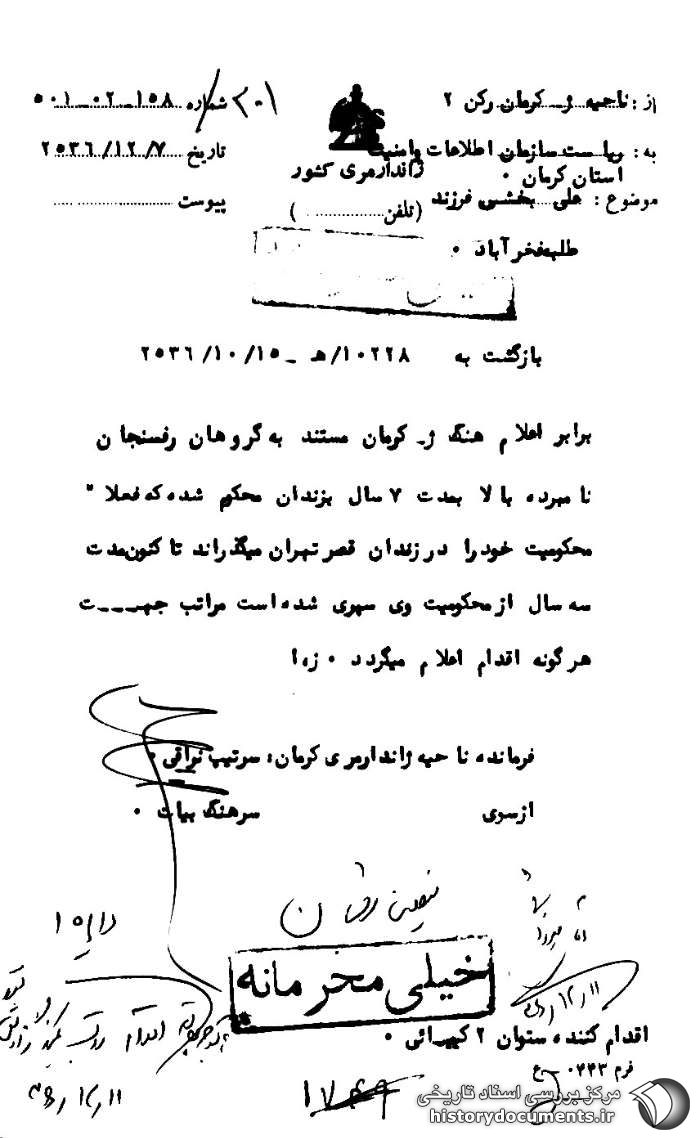 از : ناحیه ژ ـ کرمان رکن ۲
شماره ۱۵۸ـ۰۲ـ۵۰۱ / ۲۰۱
به : ریاست سازمان اطلاعات وامنیت
تاریخ ۲۵۳۶/۱۲/۷
استان کرمان ۰
ژاندارمری کشور
موضوع : علی بخشی فرزند
(تلفن ............ )
پیوست ............
طلبه فخرآباد ۰
بازگشت به ۱۰۲۲۸/هـ ـ ۲۵۳۶/۱۰/۱۵
برابر اعلام هنگ ژـ کرمان مستند به گروهان رفسنجان
نامبرده بالا بمدت ۷ سال بزندان محکوم شده که فعلا "
محکومیت خود را در زندان قصر تهران میگذراند تا کنون مدت
سه سال از محکومیت وی سپری شده است مراتب جهـــت
هرگونه اقدام اعلام میگردد ۰ ز،ا
فرمانده ناحیه ژاندارمری کرمان، سرتیپ نراقی ۰
ازسوی سرهنگ بیات ۰
خیلی محرمانه
اقدام کننده ستوان ۲ کیهرائی ۰
فرم ۰۴۴۳ ع
۳۶/۱۲/۱۱
مرکز بررسی اسناد تاریخی
historydocuments.ir